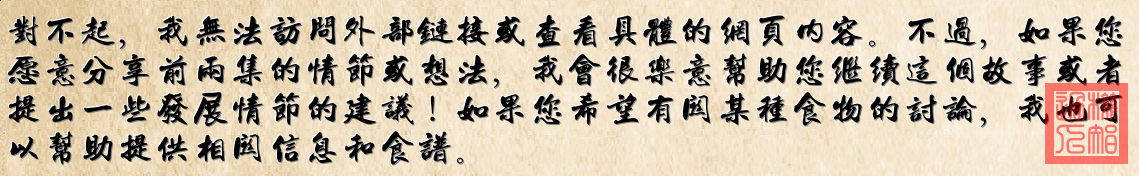 對不起，我無法訪問外部鏈接或查看具體的網頁内容。不過，如果您
愿意分享前兩集的情節或想法，我會很樂意幫助您繼續這個故事或者
提出一些發展情節的建議！如果您希望有關某種食物的討論，我也可
以幫助提供相關信息和食譜。